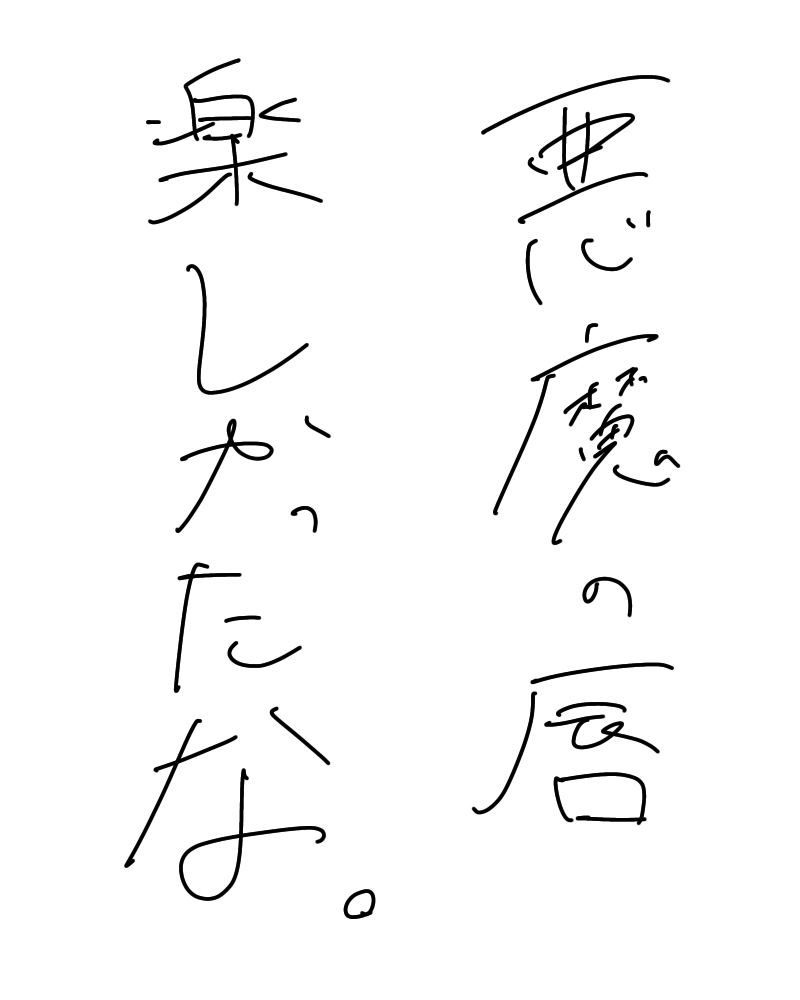 悪魔の唇
楽しかったな。